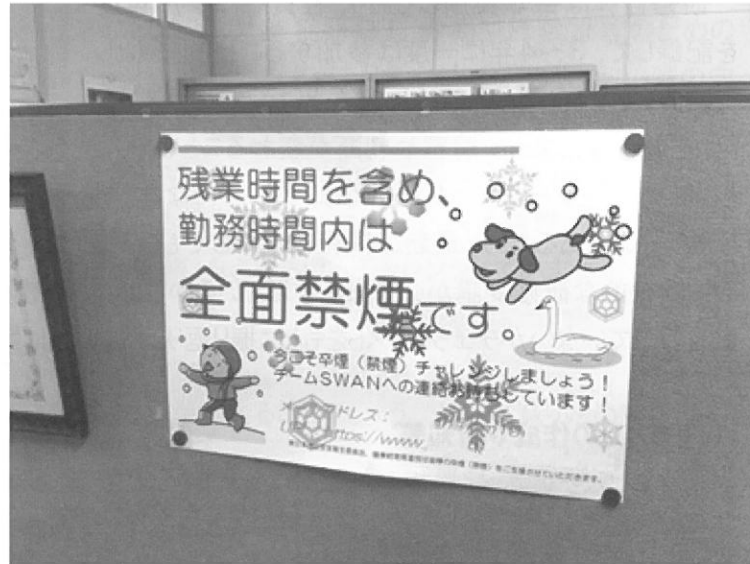 残業時間を含め、
勤務時間内は
全面禁煙です。
今こそ卒煙(禁煙)チャレンジしましょう!
チームSWANへの連絡お待ちしています!
ドレス:
https://www.